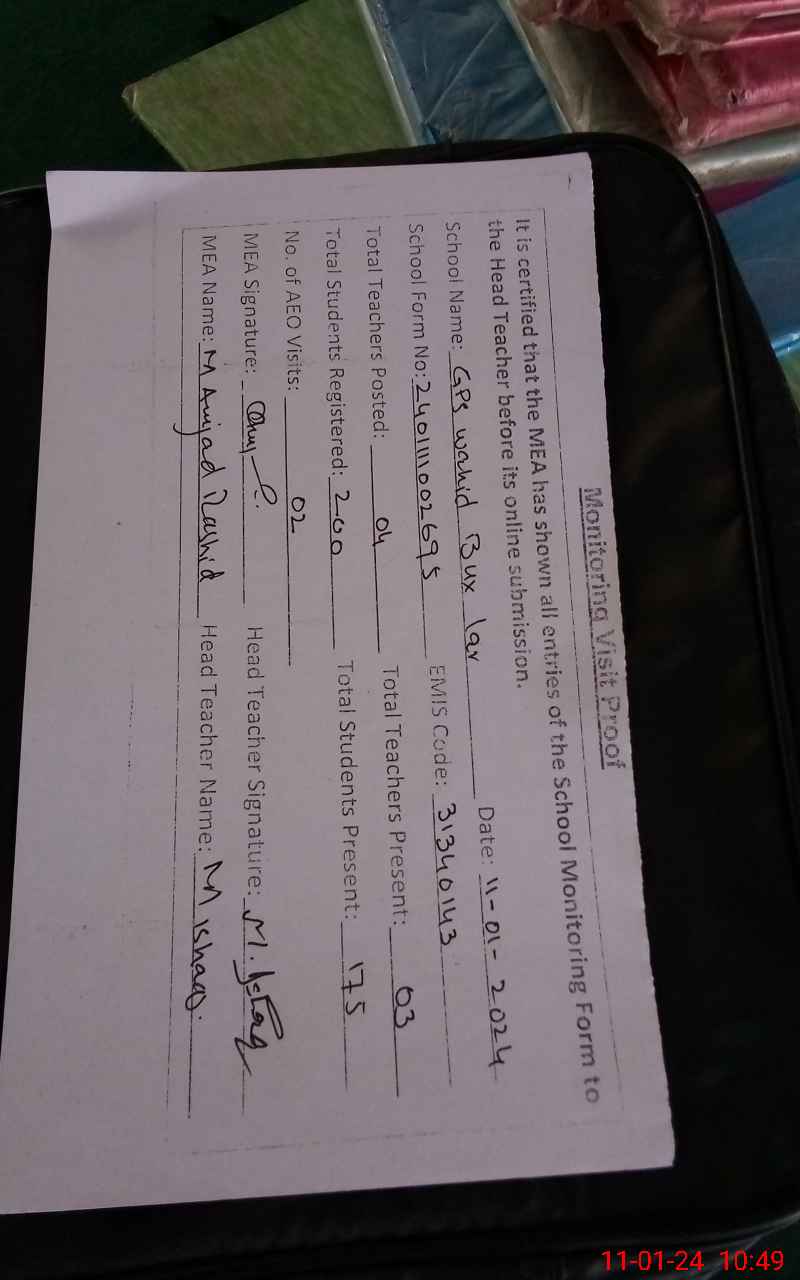 Monitoring Visit Proof
It is certified that the MEA has shown all entries of the School Monitoring Form to
the Head Teacher before its online submission.
School Name: GPS Wahid Bux lar Date: 11-01-2024
School Form No: 240111002695 EMIS Code: 31340143
Total Teachers Posted: 04 Total Teachers Present: 03
Total Students Registered: 200 Total Students Present: 175
No. of AEO Visits: 02
MEA Signature: Head Teacher Signature: M. Ishaq
MEA Name: M Amjad Rashid Head Teacher Name: M Ishaq.
11-01-24 10:49